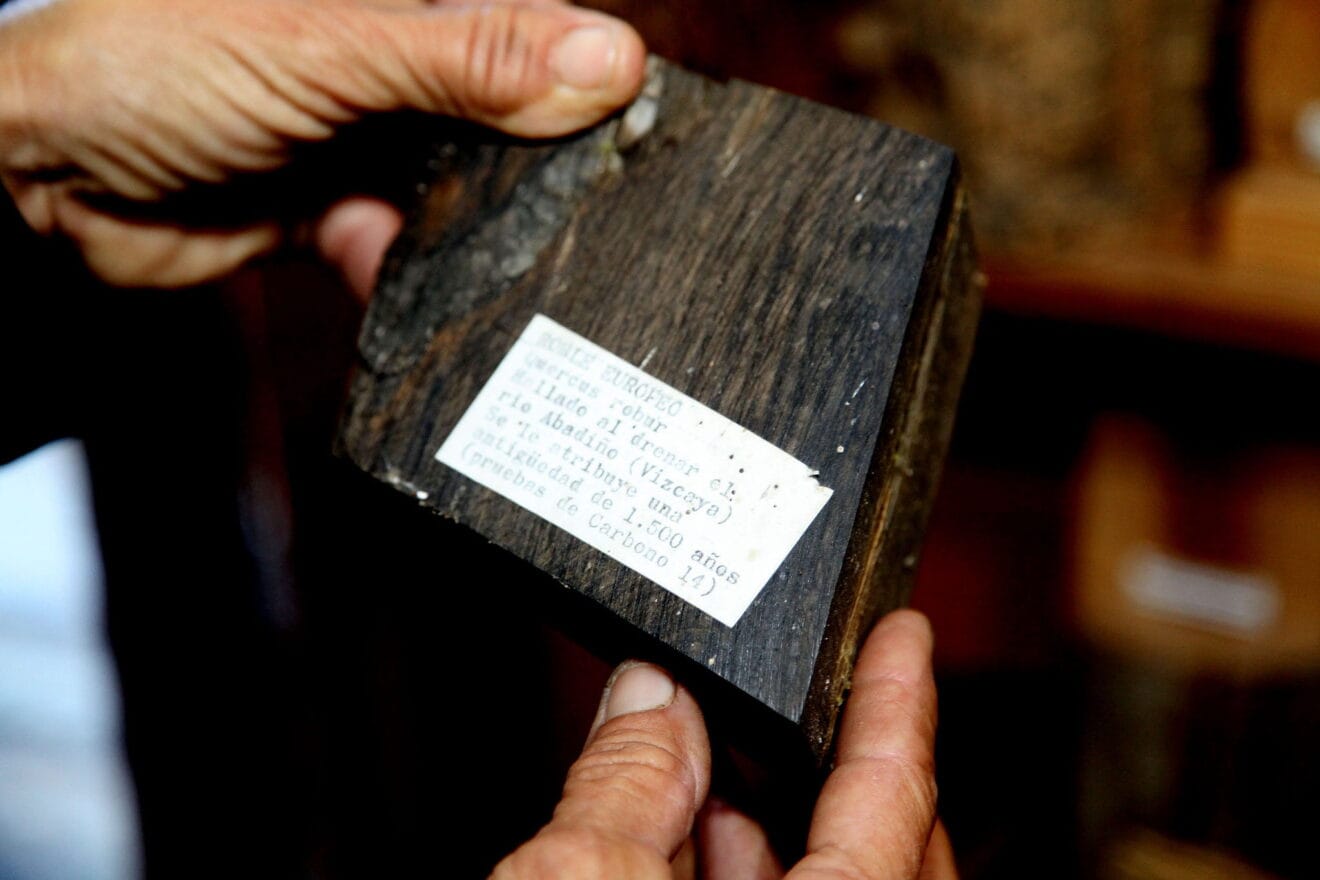 ROBLE EUROPEO
Quercus robur
Hallado al drenar el
río Abadiño (Vizcaya)
Se le atribuye una
antigüedad de 1.500 años
(pruebas de Carbono 14)